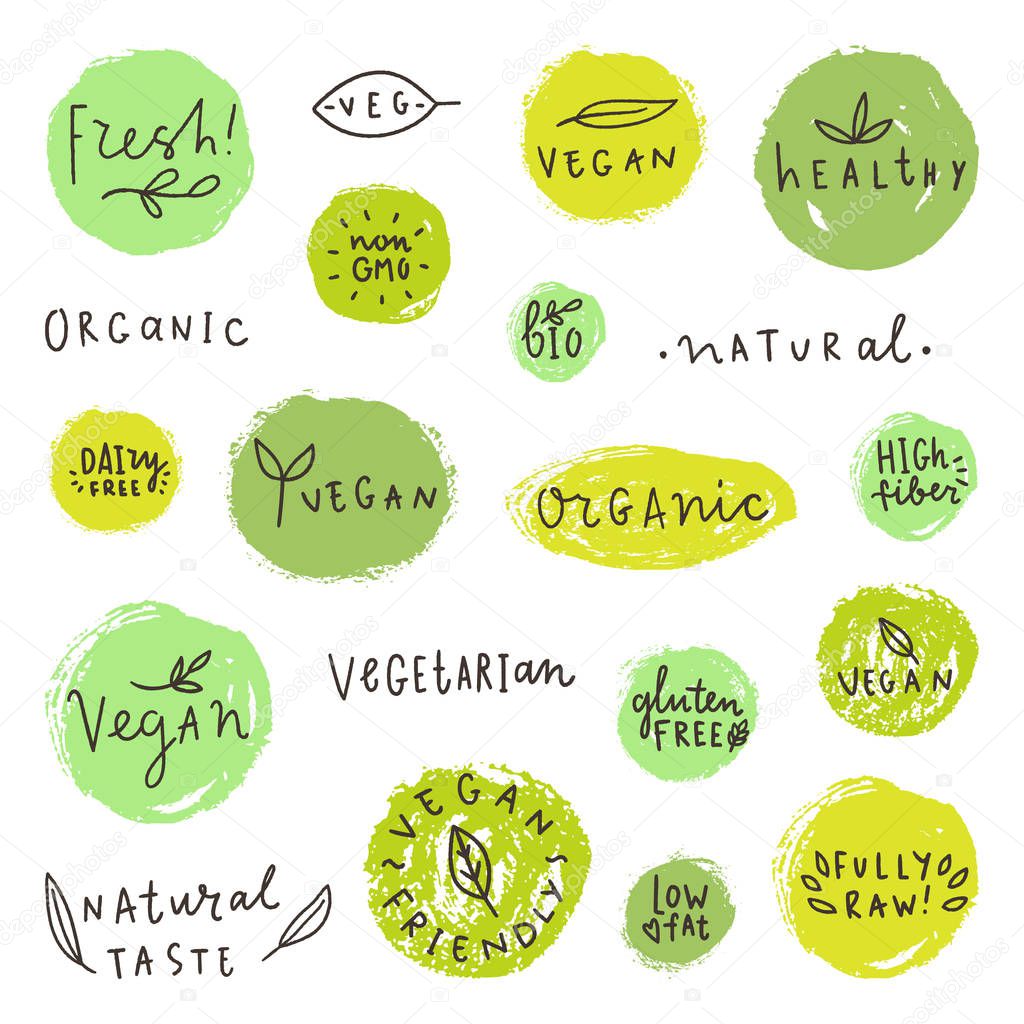 Fresh!
-VEG-
VEGAN
hEALthY
non
GMO
ORGANIC
bIO
•NATURAL•
DAIry
FREE
VEGAN
OrGAnic
HIGh
fiber
VEGAN
VeGETARIAn
gluten
FREE
VEGAN
~VEGAN~
FRIENDLY
NAtural
TASTE
LOW
fat
FULLY
RAW!
depositphotos